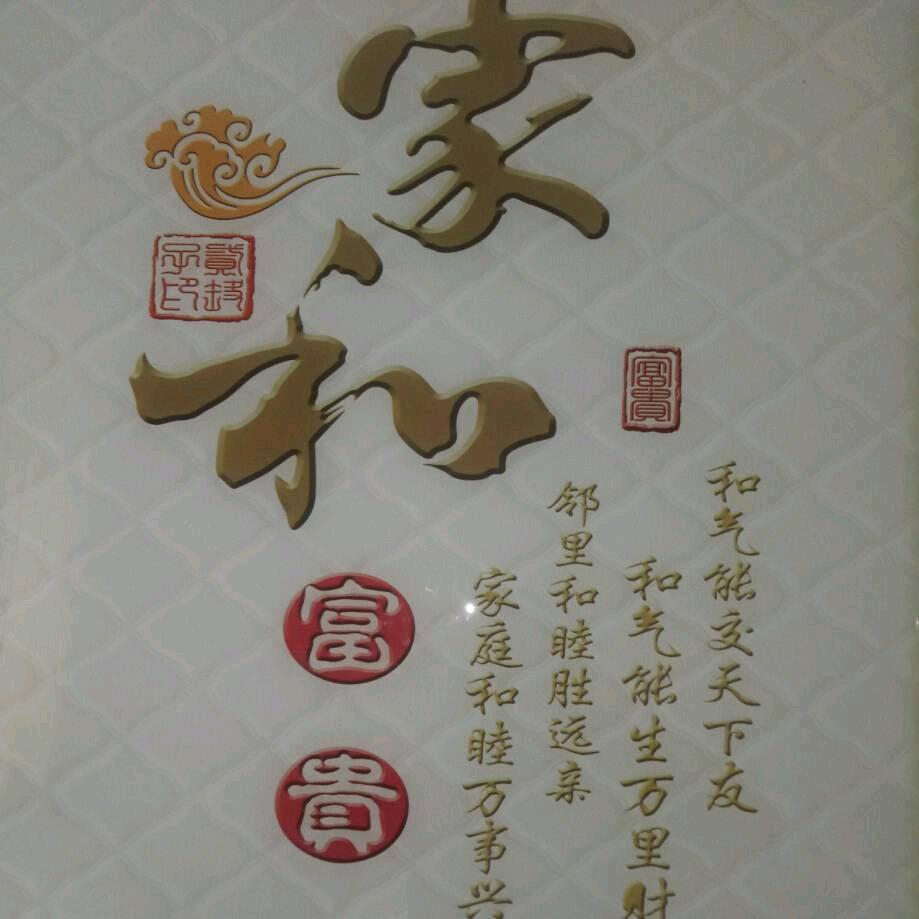 家和
富貴
富貴
和气能交天下友
和气能生万里财
邻里和睦胜远亲
家庭和睦万事兴